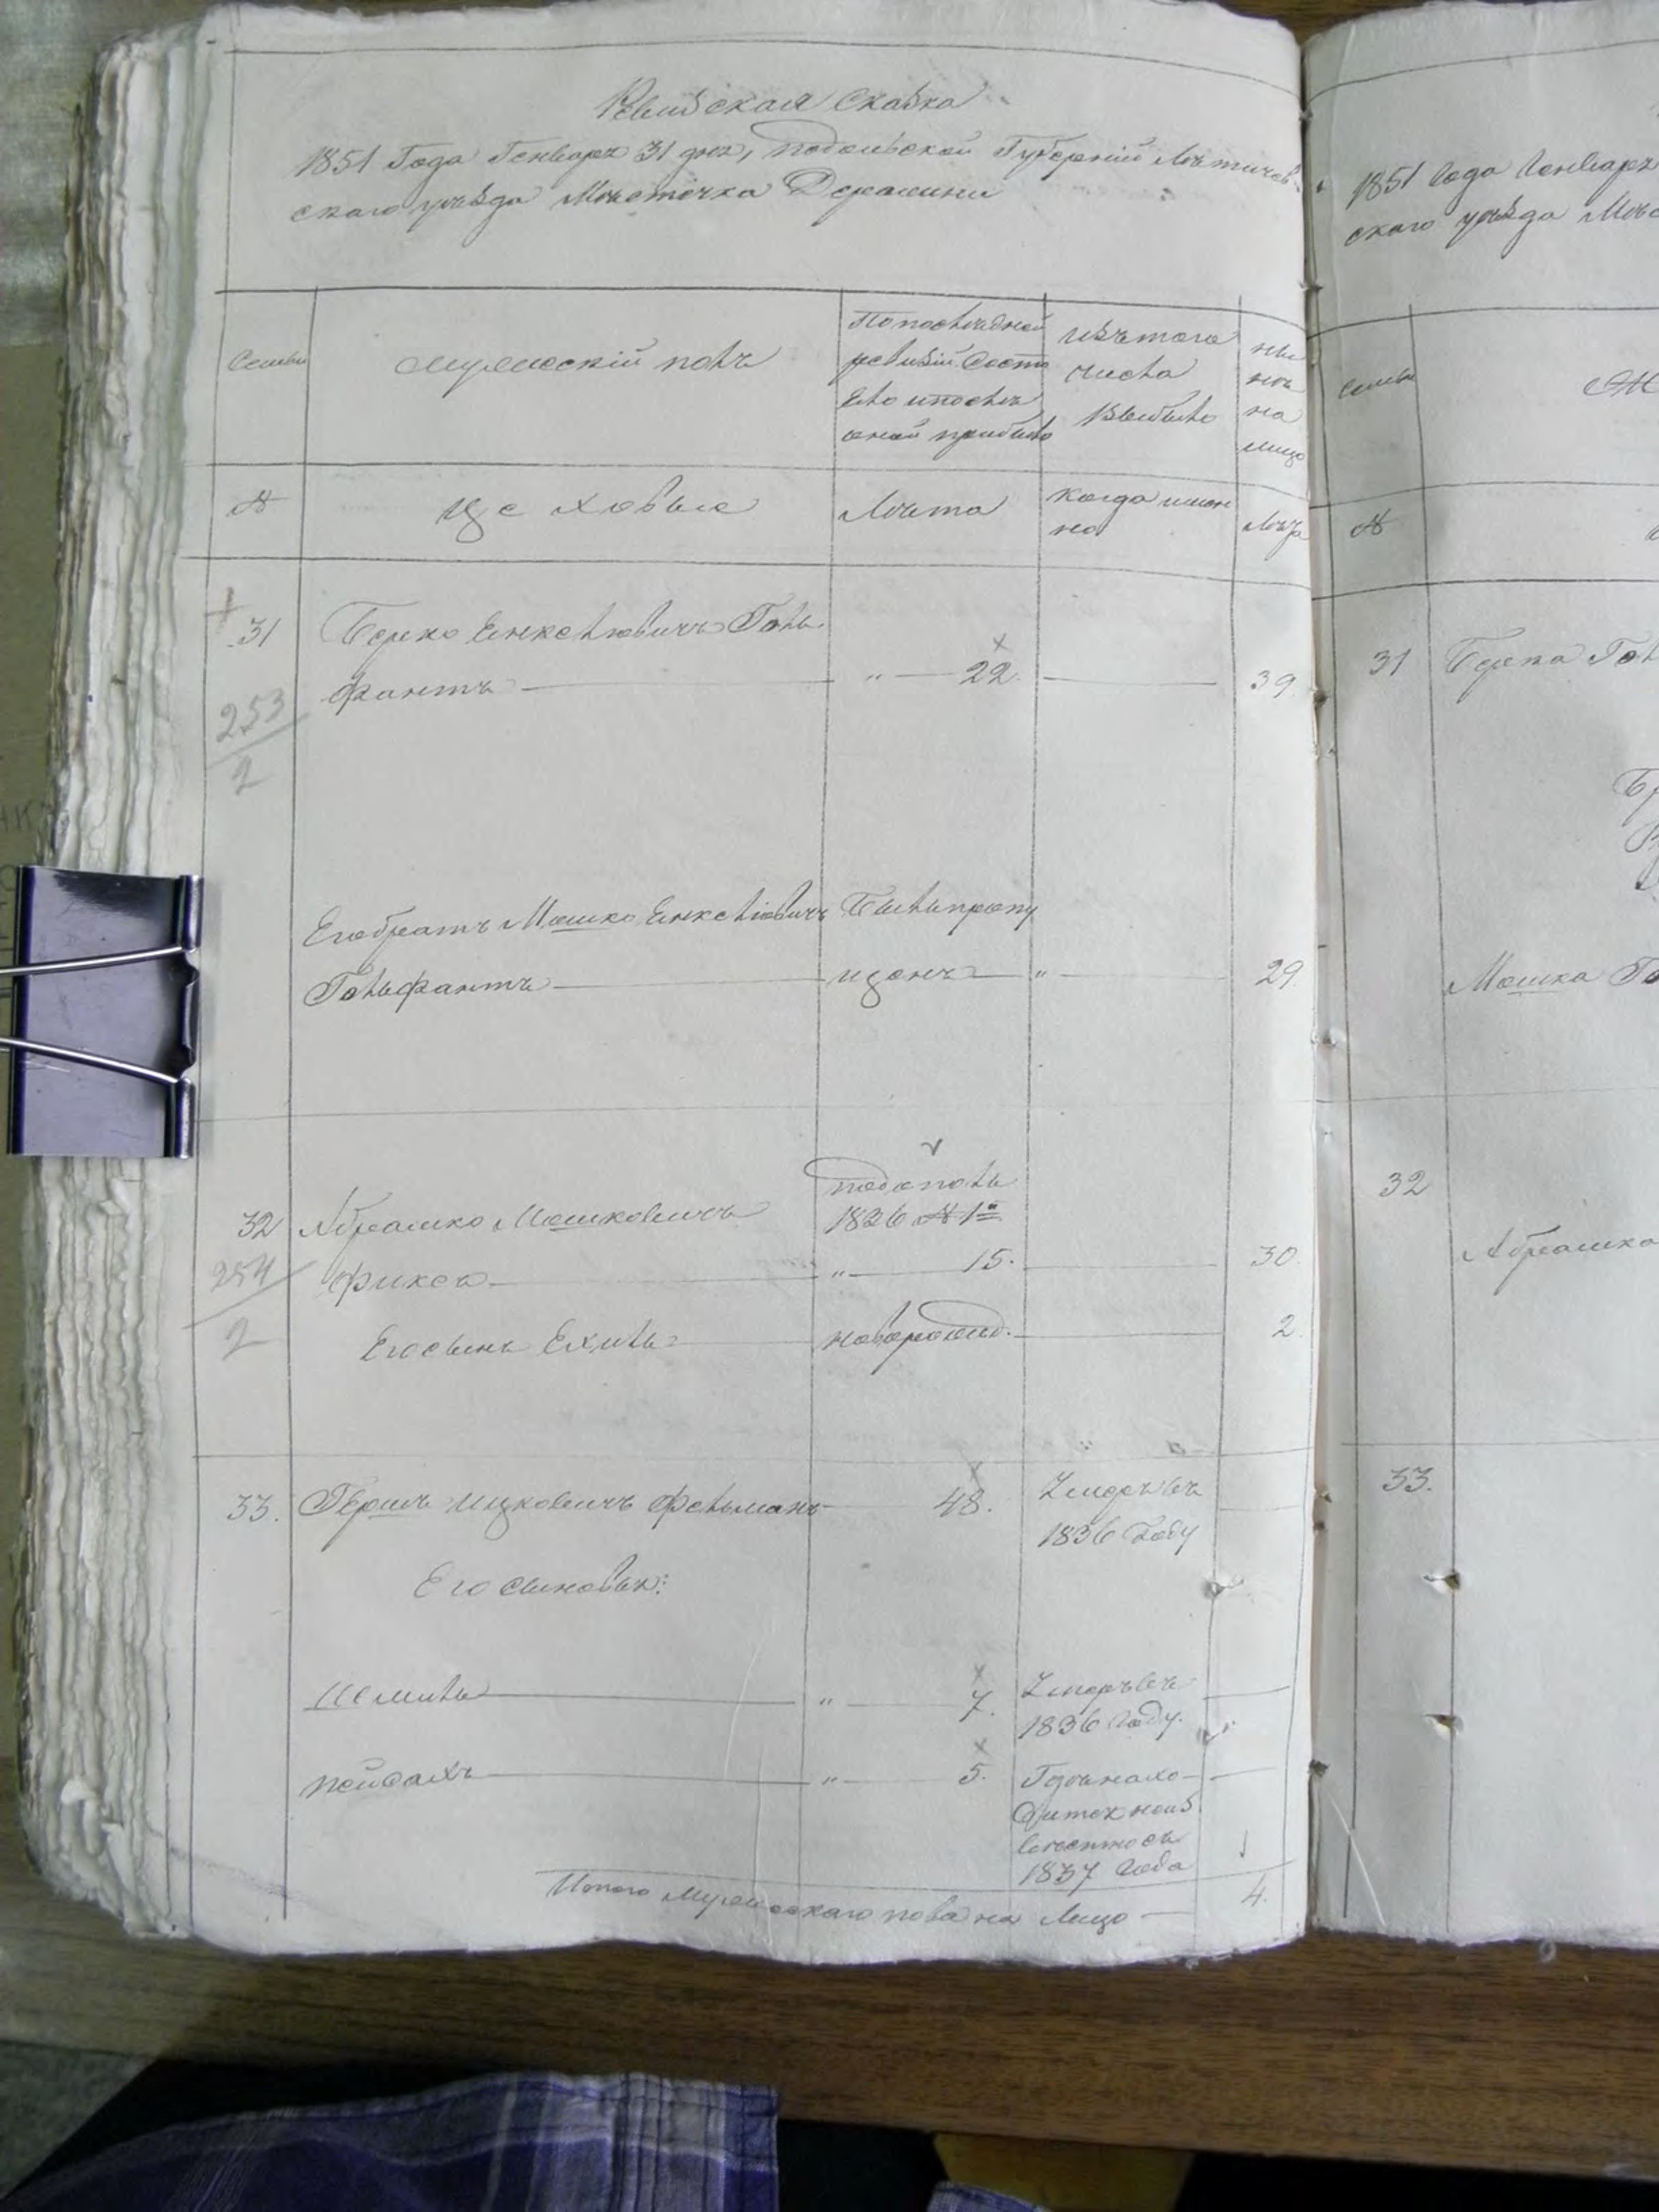 Ревизская Сказка
1851 Года Генваря 31 дня, Подольской Губернии Летичев-
скаго уѣзда Мѣстечка Деражни
Семьи
Мужескій полъ
По послѣдней
ревизіи состо
яло и послѣ
оной прибыло
Изъ того
числа
Выбыло
Ны
нѣ
на
лицо
№
Цеховые
Лѣта
Когда имен
но
Лѣта
31
Берко Енкелювичъ Голь
фантъ
" 22.
39.
253/2
Его братъ Мошко Енкелювичъ
Гольфантъ
Былъ пропу
щенъ "
29.
32
Абрашко Мошковичъ
Фикса
подополн
1836 № 1й
" 15.
30.
254/2
Его сынъ Ехиль
новорожд.
2.
33.
Гершъ Ицковичъ Фельманъ
48.
Умеръ въ
1836 Году
Его сыновья:
Шмиль
" 7.
Умеръ въ
1836 Году.
Пейсахъ
" 5.
Где нахо-
дится неиз
вѣстно съ
1837 Года
Итого Мужескаго пола на Лицо
4.
1851 Года Генваря
скаго уѣзда Мѣс
Семьи
№
31
Берка Гол
Мошка Го
32
Абрашка
33.